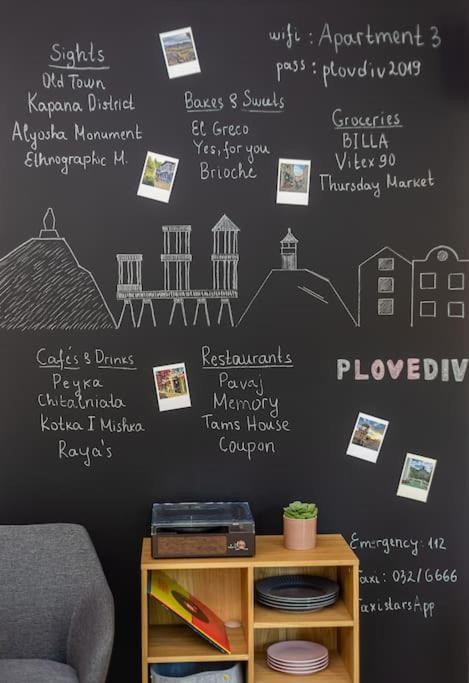 Sights
Old Town
Kapana District
Alyosha Monument
Ethnographic M.
wifi : Apartment 3
pass : plovdiv2019
Bakes & Sweets
El Greco
Yes, for you
Brioche
Groceries
BILLA
Vitex 90
Thursday Market
Café's & Drinks
Peyka
Chitalniata
Kotka I Mishka
Raya's
Restaurants
Pavaj
Memory
Tams House
Coupon
PLOVEDIV
Emergency: 112
Taxi: 032/6666
TaxistarsApp